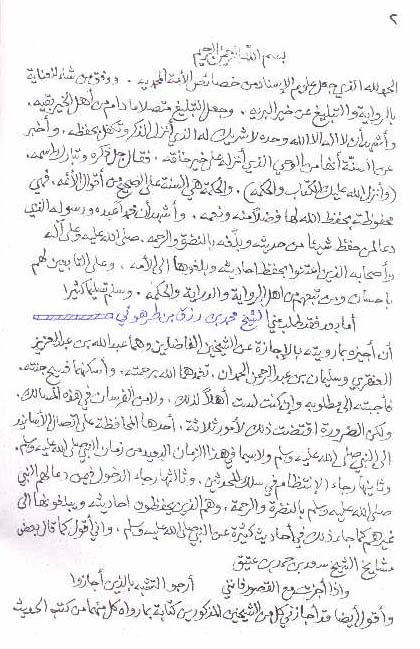 ٢
بسم الله الرحمن الرحيم
الحمد لله الذي جعل علوم الإسناد من خصائص الأمة المحمدية . ووفق من شاء للعناية
بالرواية والتبليغ عن خير البرية . وجعل التبليغ متصلا ما دام من أهل الخير بقية .
وأشهد أن لا اله الا الله وحده لا شريك له الذي أنزل الذكر وتكفل بحفظه . وأخبر
عن السنة أنها من الوحي الذي أنزله على خير خلقه . فقال جل ذكره وتبارك اسمه .
(وأنزل الله عليك الكتاب والحكمة) . والحكمة هي السنة على الصحيح من أقوال الأئمة . فهي
محفوظة بحفظ الله لها فضلا منه ونعمة . وأشهد أن محمدا عبده ورسوله الذي
دعا لمن حفظ شيئا من حديثه وبلّغه بالنضرة والرحمة . صلى الله عليه وعلى آله
وأصحابه الذين اعتنوا بحفظ احاديثه وبلغوها الى الأمة . وعلى التابعين لهم
باحسان ومن تبعهم من اهل الرواية والدراية والحكمة . وسلم تسليما كثيرا
أما بعد فقد طلب مني الشيخ محمد بن رزق بن طرهوني
أن أجيزه بما رويته بالإجازة عن الشيخين الفاضلين وهما عبدالله بن عبدالعزيز
العنقري وسليمان بن عبدالرحمن الحمدان . تغمدها الله برحمته . وأسكنهما فسيح جنته .
فأجبته الى مطلوبه وان كنت لست أهلاً لذلك . ولا من الفرسان في هذه المسالك .
ولكن الضرورة اقتضت ذلك لأمور ثلاثة . أحدها المحافظة على اتصال الأسانيد
الى النبي صلى الله عليه وسلم ولا سيما في هذا الزمان البعيد من زمان النبي صلى الله عليه وسلم .
وثانيها رجاء الإنتظام في سلك المحدثين . وثالثها رجاء الدخول فيمن دعا لهم النبي
صلى الله عليه وسلم بالنضرة والرحمة . وهم الذين يحفظون احاديثه ويبلغونها الى
غيرهم كما جاء ذلك في أحاديث كثيرة عن النبي صلى الله عليه وسلم . واني أقول كما قال بعض
مشايخ الشيخ سعد بن حمد بن عتيق
واذا أجزت مع القصور فانني أرجو التشبه بالذين أجازوا
وأقول أيضا قد أجازني كل من الشيخين المذكورين كتابة بما رواه كل منهما من كتب الحديث